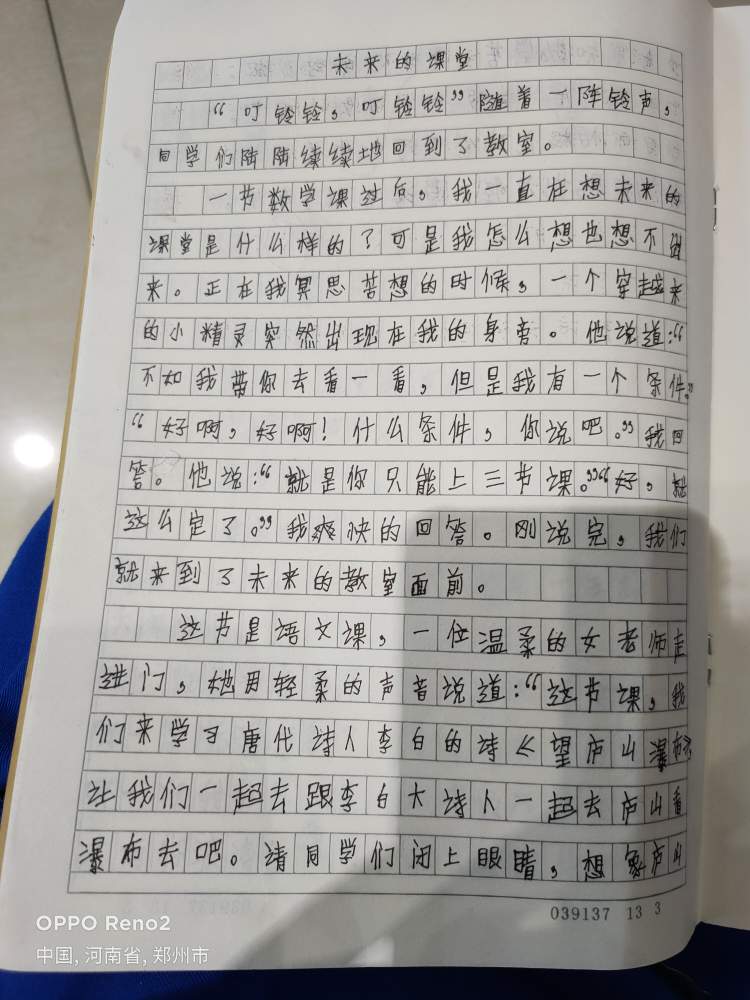 未来的课堂
“叮铃铃，叮铃铃”随着一阵铃声，
同学们陆陆续续地回到了教室。
一节数学课过后，我一直在想未来的
课堂是什么样的？可是我怎么想也想不出
来。正在我冥思苦想的时候，一个穿越来
的小精灵突然出现在我的身旁。他说道：“
不如我带你去看一看，但是我有一个条件。”
“好啊，好啊！什么条件，你说吧。”我回
答。他说：“就是你只能上三节课。”“好，就
这么定了。”我爽快的回答。刚说完，我们
就来到了未来的教室面前。
这节是语文课，一位温柔的女老师走
进门，她用轻柔的声音说道：“这节课，我
们来学习唐代诗人李白的诗《望庐山瀑布》
让我们一起去跟李白大诗人一起去庐山看
瀑布去吧。请同学们闭上眼睛，想象庐山
039137 13 3
OPPO Reno2
中国, 河南省, 郑州市